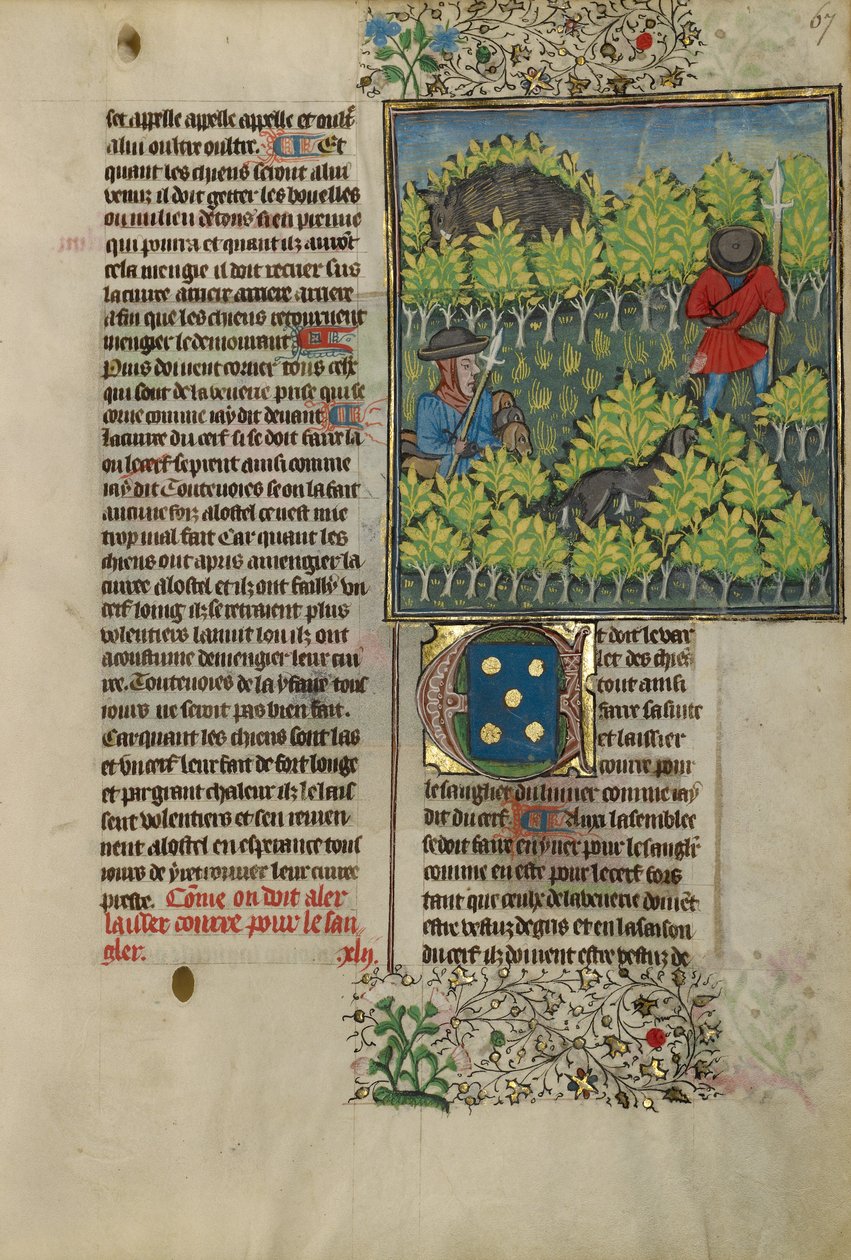 67
set appelle appelle appelle et oult̃
a lui oultre oultre. Et
quant les chiens seront a lui
venuz il doit getter les bouelles
ou milieu de tous si en prenne
qui pourra et quant ilz auröt
cela mengie il doit recuer sus
la cuiree arriere arriere arriere
afin que les chiens retournent
mengier le demourant
Puis doiuent corner tous ceulx
qui sont de la venerie prise qui se
corne comme iay dit deuant
la cuiree du cerf si se doit faire la
ou le cerf se prent ainsi comme
iay dit Toutevoies se on la fait
aucune foiz a lostel ce nest mie
trop mal fait Car quant les
chiens ont apris a mengier la
cuiree a lostel et ilz ont failly vn
cerf loing ilz se retraient plus
volentiers la nuit la ou ilz ont
acoustume de mengier leur cui
ree. Toutevoies de la y faire tous
iours ne seroit pas bien fait.
Car quant les chiens sont las
et vn cerf leur fait de fort longe
et par grant chaleur ilz le lais
sent volentiers et sen reuien
nent a lostel en esperance tous
iours de y retrouuer leur cuiree
preste. Cõme on doit aler
laisser courre pour le san
gler. .xlij.
Et doit le var
let des chiẽs
tout ainsi
faire sa suite
et laissier
courre pour
le sanglier du limier comme iay
dit du cerf. Aux la semblee
se doit faire en yuer pour le sanglr̃
comme en este pour le cerf fors
tant que ceulx de la venerie doiuẽt
estre vestuz de gris et en la saison
du cerf ilz doiuent estre vestuz de